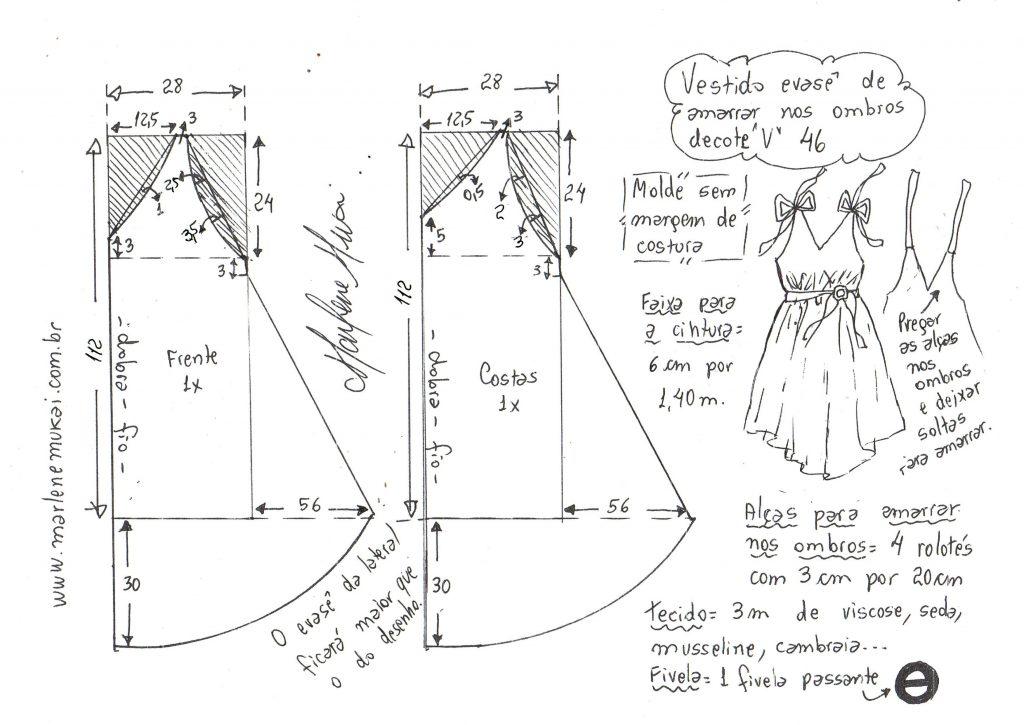 Vestido evasê de
amarrar nos ombros
decote "V" 46
28
12,5
3
2,5
1
3,5
24
3
3
112
Frente
1x
- dobra - fio -
56
30
28
12,5
3
0,5
2
3
24
5
3
112
Costas
1x
- dobra - fio -
56
30
Marlene Mukai
www.marlenemukai.com.br
O evasê da lateral
ficará maior que
o do desenho.
Molde sem
margem de
costura
Faixa para
a cintura=
6 cm por
1,40 m.
Pregar
as alças
nos
ombros
e deixar
soltas
para amarrar.
Alças para amarrar
nos ombros= 4 rolotês
com 3 cm por 20 cm
Tecido= 3 m de viscose, seda,
musseline, cambraia...
Fivela= 1 fivela passante